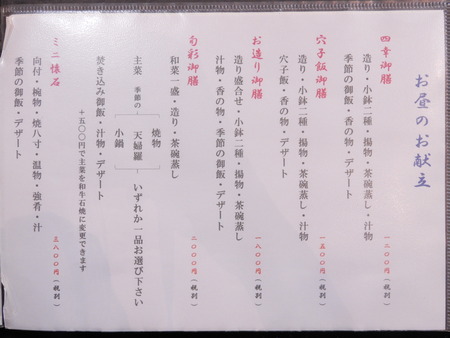 お昼のお献立
四幸御膳
造り・小鉢二種・揚物・茶碗蒸し・汁物
季節の御飯・香の物・デザート
一二〇〇円(税別)
穴子飯御膳
造り・小鉢二種・揚物・茶碗蒸し・汁物
穴子飯・香の物・デザート
一五〇〇円(税別)
お造り御膳
造り盛合せ・小鉢二種・揚物・茶碗蒸し
汁物・香の物・季節の御飯・デザート
一八〇〇円(税別)
旬彩御膳
和菜一盛・造り・茶碗蒸し
主菜 季節の
焼物
天婦羅
小鍋
いずれか一品お選び下さい
焚き込み御飯・汁物・デザート
+五〇〇円で主菜を和牛石焼に変更できます
二〇〇〇円(税別)
ミニ懐石
向付・椀物・焼八寸・温物・強肴・汁
季節の御飯・デザート
三八〇〇円(税別)